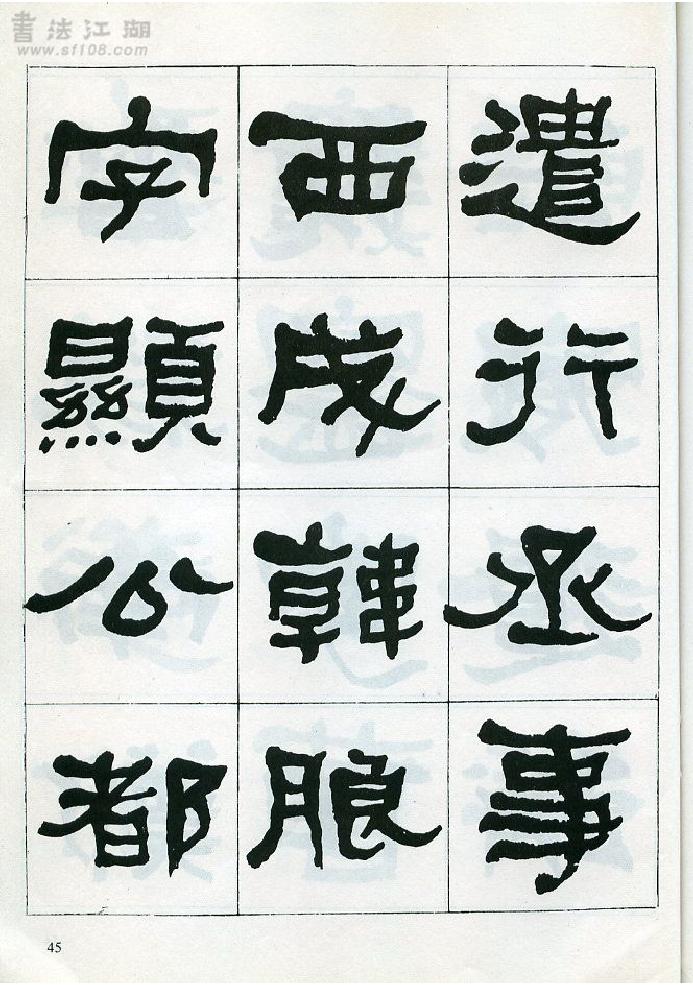 書法江湖
www.sf108.com
遣行丞事
西成韓朖
字顯公都
45